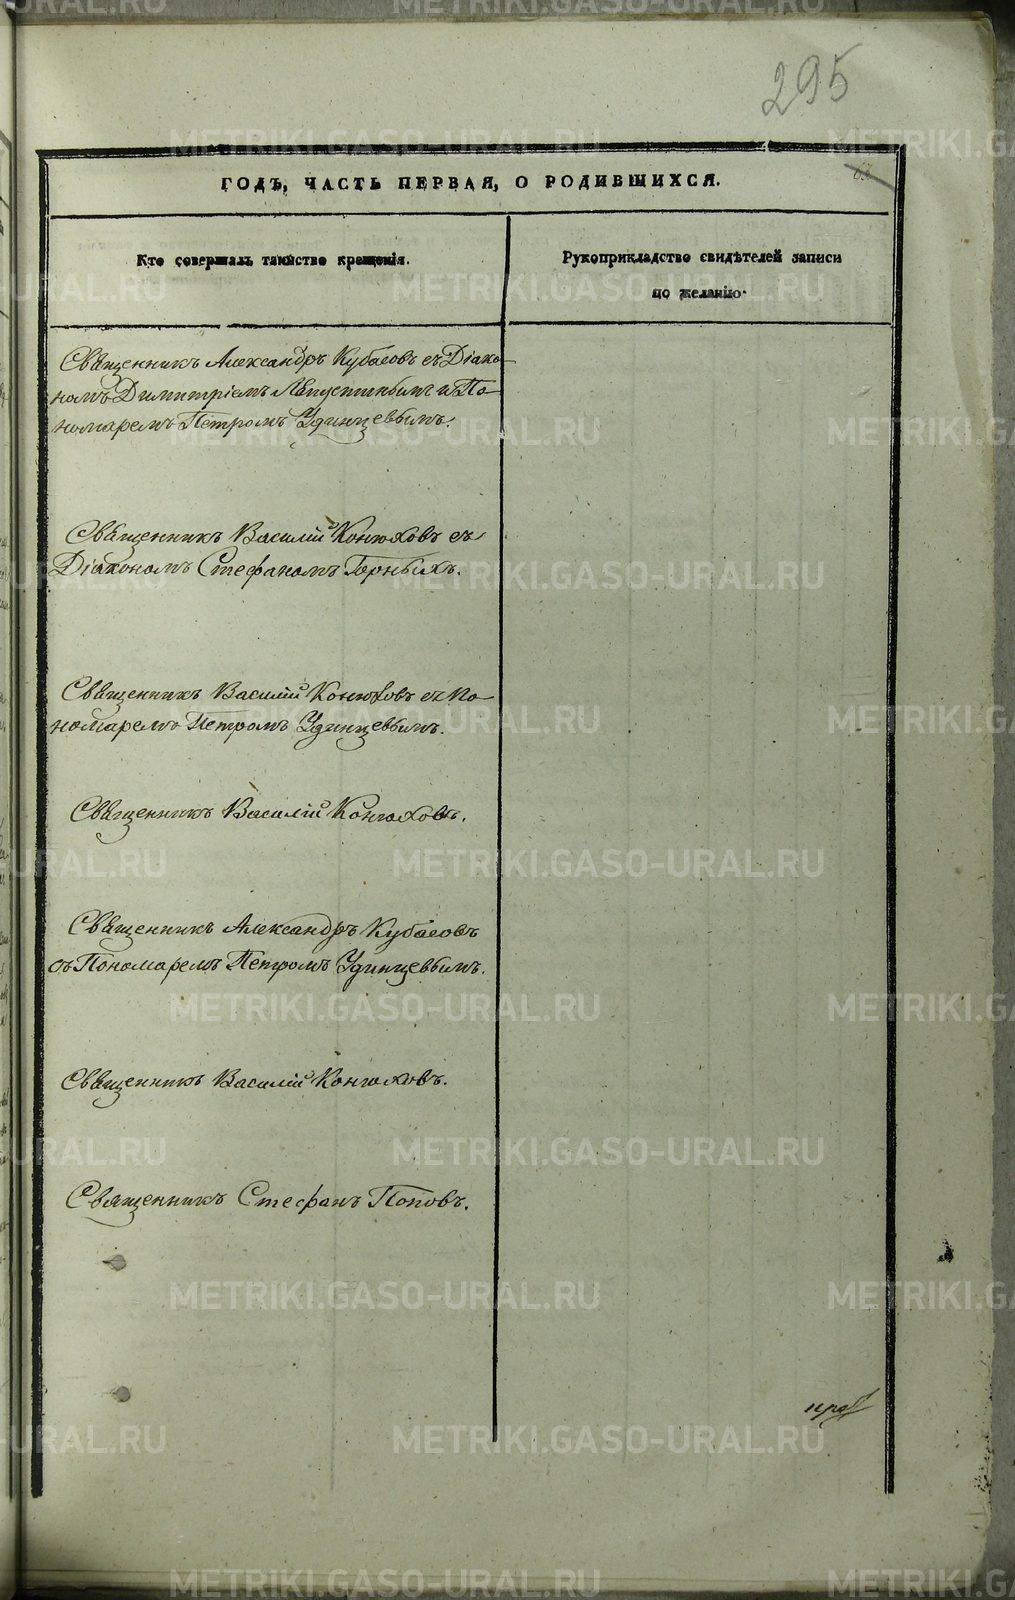 295
ГОДЪ, ЧАСТЬ ПЕРВАЯ, О РОДИВШИХСЯ.
Кто совершалъ таинство крещенія.
Рукоприкладство свидѣтелей записи
по желанію.
Священникъ Александръ Кубасовъ съ Діако-
номъ Димитріемъ и По-
номаремъ Петромъ Удинцевымъ.
Священникъ Василій Конюховъ съ
Діакономъ Стефаномъ Горныхъ.
Священникъ Василій Конюховъ съ По-
номаремъ Петромъ Удинцевымъ.
Священникъ Василій Конюховъ.
Священникъ Александръ Кубасовъ
съ Пономаремъ Петромъ Удинцевымъ.
Священникъ Василій Конюховъ.
Священникъ Стефанъ Поповъ.
METRIKI.GASO-URAL.RU